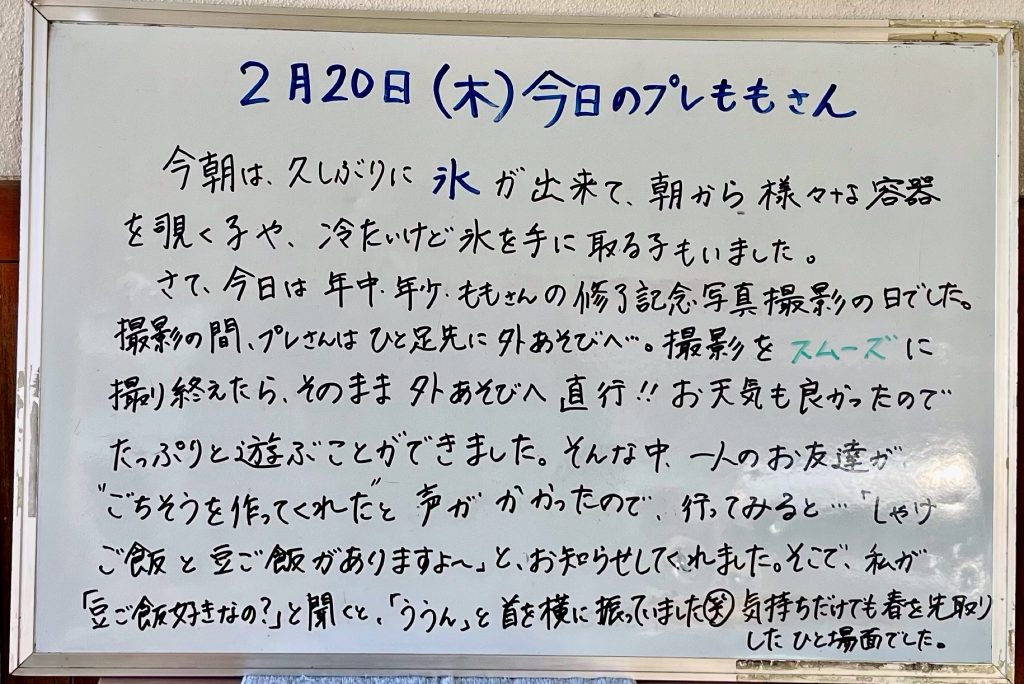 2月20日(木)今日のプレももさん
今朝は、久しぶりに 氷 が出来て、朝から様々な容器
を覗く子や、冷たいけど氷を手に取る子もいました。
さて、今日は年中・年少・ももさんの修了記念写真撮影の日でした。
撮影の間、プレさんはひと足先に外あそびへ…。撮影をスムーズに
撮り終えたら、そのまま外あそびへ直行!!お天気も良かったので
たっぷりと遊ぶことができました。そんな中、一人のお友達が
"ごちそうを作ってくれた"と声がかかったので、行ってみると…「しゃけ
ご飯と豆ご飯がありますよ〜」と、お知らせしてくれました。そこで、私が
「豆ご飯好きなの?」と聞くと、「ううん」と首を横に振っていました㊗気持ちだけでも春を先取り
したひと場面でした。